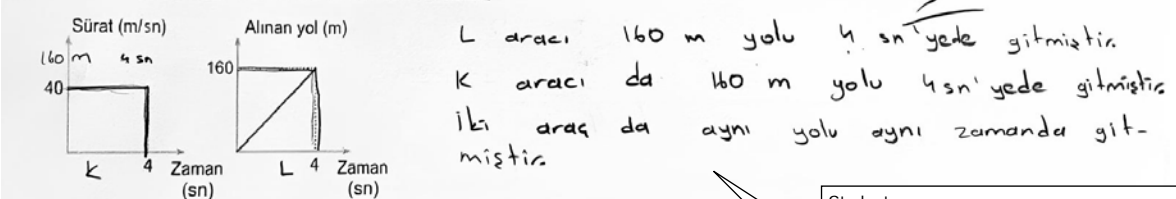 Sürat (m/sn)
160 m 4 sn
40
K
4
Zaman
(sn)
Alınan yol (m)
160
L
4
Zaman
(sn)
L aracı 160 m yolu 4 sn'yede gitmiştir.
K aracı da 160 m yolu 4 sn'yede gitmiştir.
İki araç da aynı yolu aynı zamanda git-
miştir.